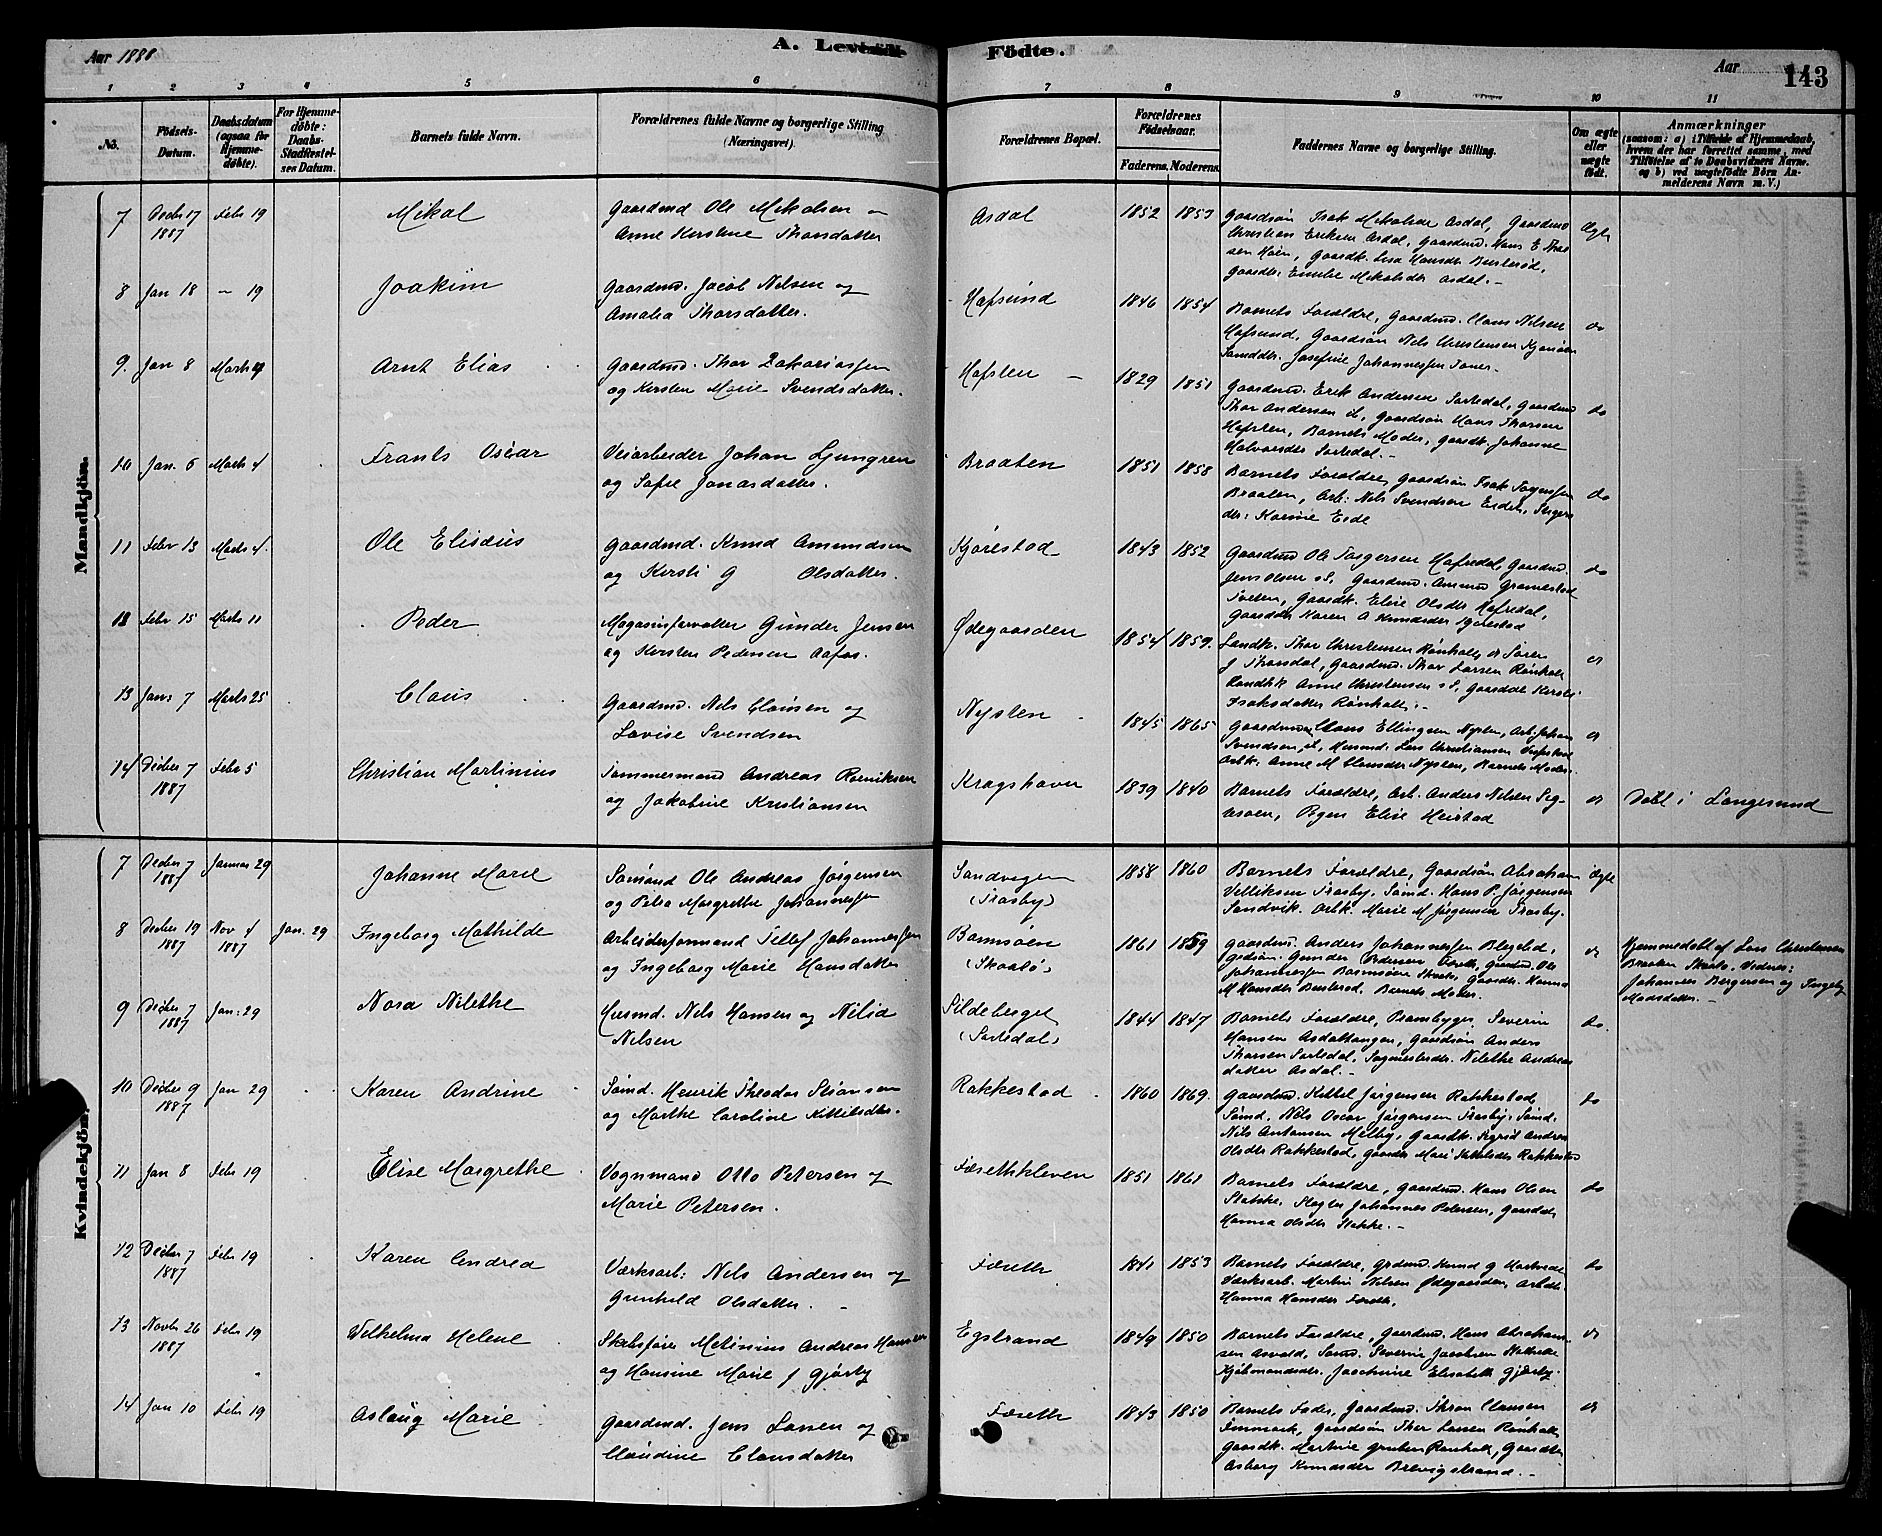 Aar 1888
A. Levende
Födte.
Aar
143
1 2 3 4 5 6 7 8 9 10 11
No.
Födsels-Datum.
Daabsdatum (ogsaa for Hjemme-döbte).
For Hjemme-döbte: Daabs-Stadfæstel-ses Datum.
Barnets fulde Navn.
Forældrenes fulde Navne og borgerlige Stilling (Næringsvei).
Forældrenes Bopæl.
Forældrenes Födselsaar.
Faderens. Moderens.
Faddernes Navne og borgerlige Stilling.
Om ægte eller uægte födt.
Anmærkninger
(saasom: a) i Tilfælde af Hjemmedaab, hvem der har forrettet samme, med Tilföielse af to Daabsvidners Navne. og b) ved uægtefödte Börn An-melderens Navn m. V.)
Mandkjön.
7 Decbr 17 1887 Febr 19 Mikal
Gaardmd Ole Mikalsen
Anne Kirstine Thorsdatter
Asdal 1852 1853
Gaardsøn Isak Mikalsen Asdal, Gaardmd
Christian Eriksen Asdal, Gaardmd. Hans E
Gaardd. Emilie Mikalsdtr Asdal.-
Ægte
8 Jan 18 - 19 Joakim
Gaardmd. Jacob Nilsen og
Amalia Thorsdatter.
Hafsund 1846 1854
Barnets Forældre, Gaardmd. Claus Nilsen
Hafsund, Gaardsøn Nils Christensen
Josefine Johannessen
do
9. Jan 8 Marts 4 Arnt Elias
Gaardmd. Thor Zakariassen
og Kirsten Marie Svendsdatter.
Hafsten - 1829 1851
Gaardmd. Erik Andersen Sortedal, Gaardmd
Thor Andersen, Gaardsøn Hans Thorsen
Hafsten, Barnets Moder, Gaardk. Johanne
Halvorsdtr Sortedal.-
do
10 Jan. 5 Marts 4 Frants Oscar
Veiarbeider Johan Ljungren
og Sofie Jonasdatter.
Braaten 1851 1858
Barnets Forældre, Gaardsøn Isak
Braaten, Arb: Nils Svendsen Eidet,
Karine Eide
do
11 Febr 13 Marts 4. Ole Elisæus
Gaardmd. Knud Amundsen
og Kirsti G Olsdatter.
Kjørestad 1843 1852
Gaardmd Ole Torgersen Hafredal, Gaardmd.
Jens Olsen, Gaardmd. Ammund
Gaardk. Elise Olsdtr Hafredal,
Gaarddtr Karen A Knudsdtr Kjørestad
do
12 Febr 15 Marts 11 Peder
Magasinforvalter Gunder Jensen
og Kirsten Pedersen Aafos.
Ødegaarden 1854 1859.
Landh. Thor Christensen Rønholt
Gaardmd. Thor Larsen Rønholt
Anne Christensen
Isaksdatter Rønholt.-
do
13 Janr 7 Marts 25 Claus
Gaardmd. Nils Clausen og
Lovise Svendsen
Nysten 1845 1865
Gaardmand Claus Ellingsen Nysten, Arb. Johan
Svendsen, Husmd. Lars Christiansen
Arbk. Anne M Clausdtr Nysten, Barnets Moder.
do
14 Decber 7 1887 Febr 5 Christian Martinius
Tømmermand Andreas
og Jakobine Kristiansen
Kragshavn 1839 1840
Barnets Forældre, Arb. Anders Nilsen
Pigen Elise Heistad
do
Døbt i Langesund
Kvindekjön.
7 Decber 7 1887 Januar 29 Johanne Marie
Sømand Ole Andreas Jørgensen
og Petra Margrethe Johannessen
Sandvigen
(Trosby)
1858 1860
Barnets Forældre, Gaardsøn Abraham
Trosby, Sømd. Hans P. Jørgensen
Sandvik. Arbk. Marie M Jørgensen Trosby.
Ægte
8 Decber 19 1887 Nov 4 1887 Jan. 29 Ingeborg Mathilde
Arbeiderformand Tellef Johannessen
og Ingeborg Marie Hansdatter
Barmsøen
(Skaalø)
1861 1859
Gaardmd. Anders Johannessen
Gunder Pedersen
Johannessen Barmsøen
M Hansdtr Busterød. Barnets Moder.
do
Hjemmedøbt af Lars Christensen
Braaten Vidner:
Johannes Børgersen og Ingeborg
Madsdatter.-
9 Decber 7 1887 Jan: 29 Nora Nilethe
Husmd. Nils Hansen og Nilia
Nilsen
Sildeberget
(Sortedal)
1844 1847
Barnets Forældre, Severin
Hansen Asdaltangen, Gaardsøn Anders
Thorsen Sortedal, Nilethe Andreas
datter Asdal.-
do.
10 Decber 9 1887 Jan 29 Karen Andrine
Sømd. Henrik Theodor
og Marthe Caroline Kittilsdtr.
Rakkestad 1860 1869.
Gaardmd. Kittel Jørgensen Rakkestad,
Sømd. Nils Oscar Jørgensen Trosby, Sømd.
Nils Antonsen Melby, Gaardk. Sigrid Andrea
Olsdtr Rakkestad, Gaarddtr Marie Kittilsdtr Rakkestad
do
11 Jan 8 Febr 19 Elise Margrethe
Vognmand Otto Petersen og
Marie Petersen.
Føsethkleven 1851 1861
Barnets Forældre, Gaardmd. Hans Olsen
Stathle, Johannes Petersen, Gaarddtr
Hanna Olsdtr Stokke.-
do
12 Decber 7 1887 Febr 19 Karen Andrea
Værksarb: Nils Andersen og
Gunhild Olsdatter. -
Føseth 1841 1853
Barnets Forældre, Grdmd. Knud
Værksarb. Martin Nilsen Ødegaarden,
Hanna Hansdtr Føseth.
do
13 Novbr 26 1887 Febr 19 Wilhelma Helene
Skibsfører Melinius Andreas Hansen
og Hansine Marie f Gjørby
Egstrand 1849 1850
Barnets Forældre, Gaardmd. Hans Abraham-
sen Sømd. Severin Jacobsen Stathelle
Kjøbmandsdtr. Joachime Elisabeth Gjørby.
do
14 Jan 10 Febr 19 Aslaug Marie
Gaardmd. Jens Larsen og
Claudine Clausdatter
Føseth 1843 1850
Barnets Fader, Gaardmd. Clausen
Gaardsøn Thor Larsen Rønholt
Gaardk. Martine Rønholt, Gaarddtr
Asborg Knudsdtr Brevigstrand.-
do